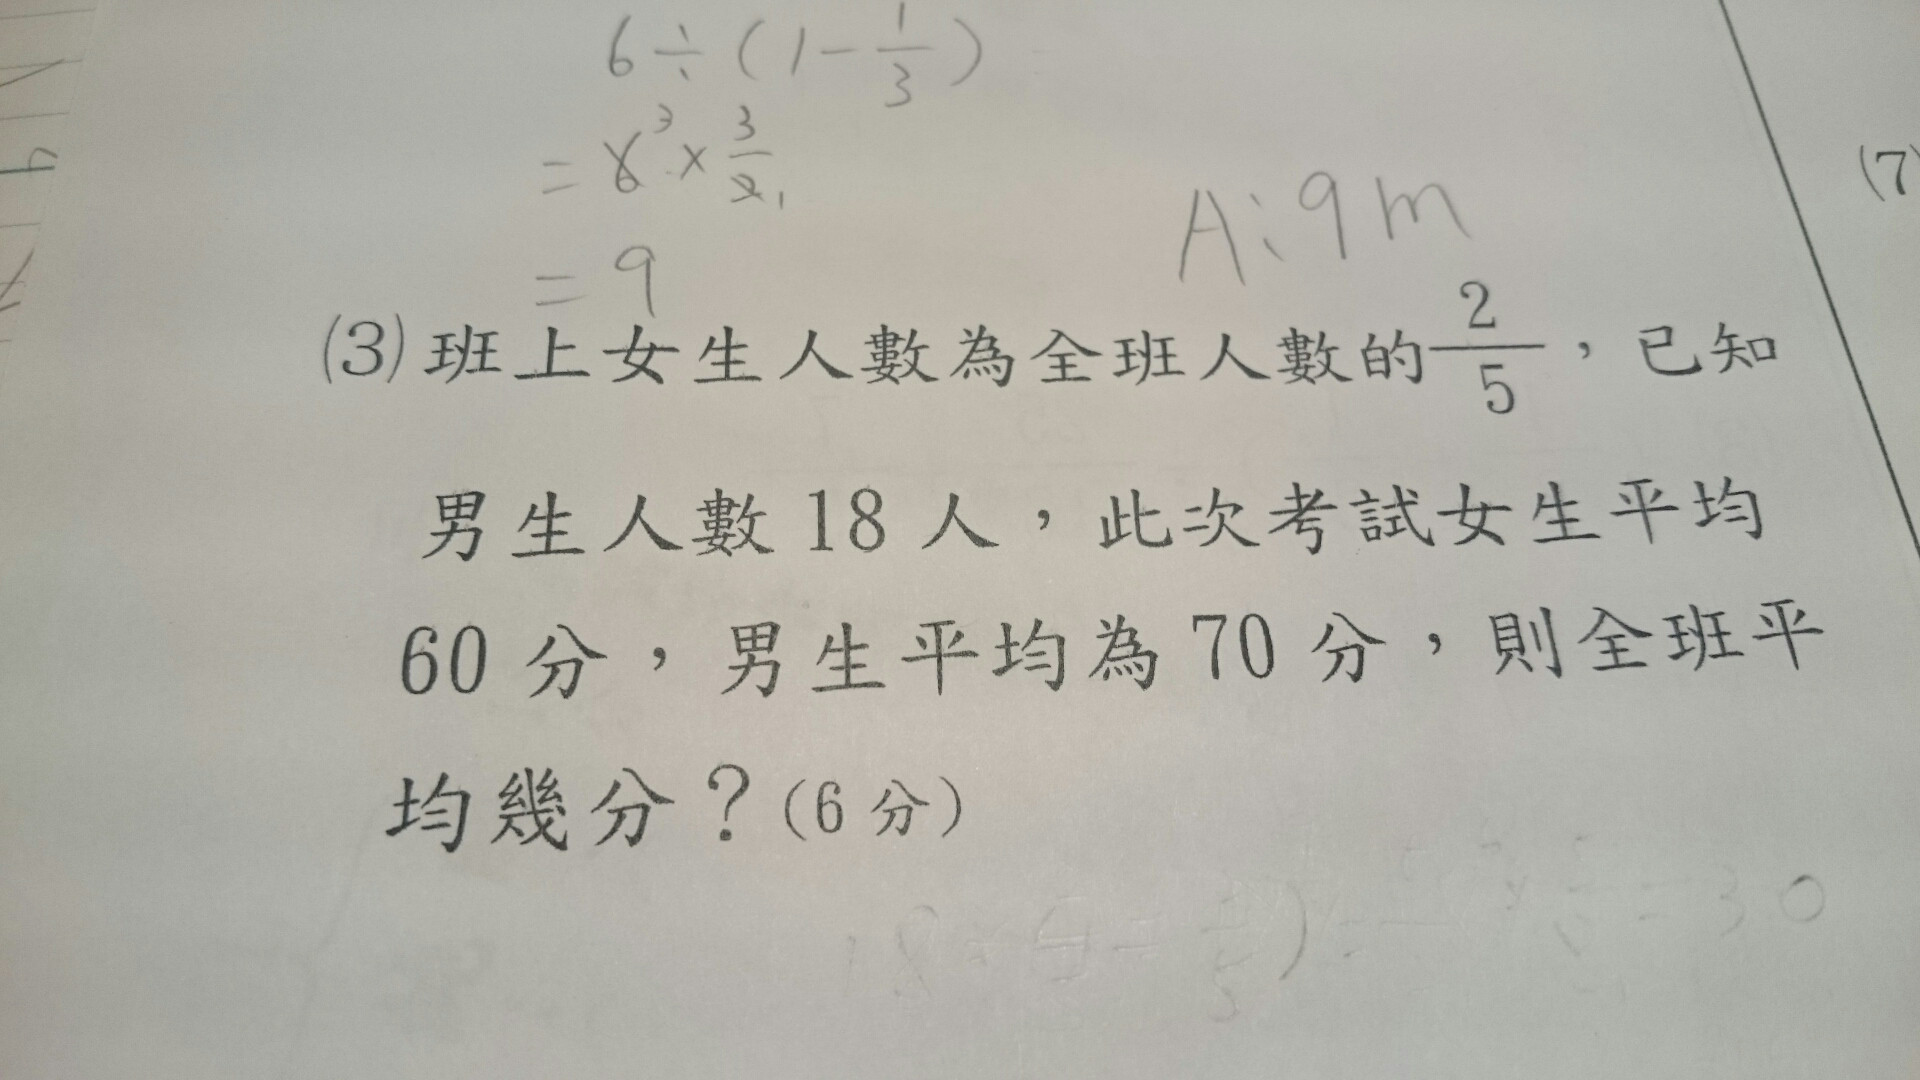 6÷(1-1/3)
=6³×3/2₁
=9
A:9m
(7)
(3)班上女生人數為全班人數的2/5,已知
男生人數18人,此次考試女生平均
60分,男生平均為70分,則全班平
均幾分?(6分)
=30